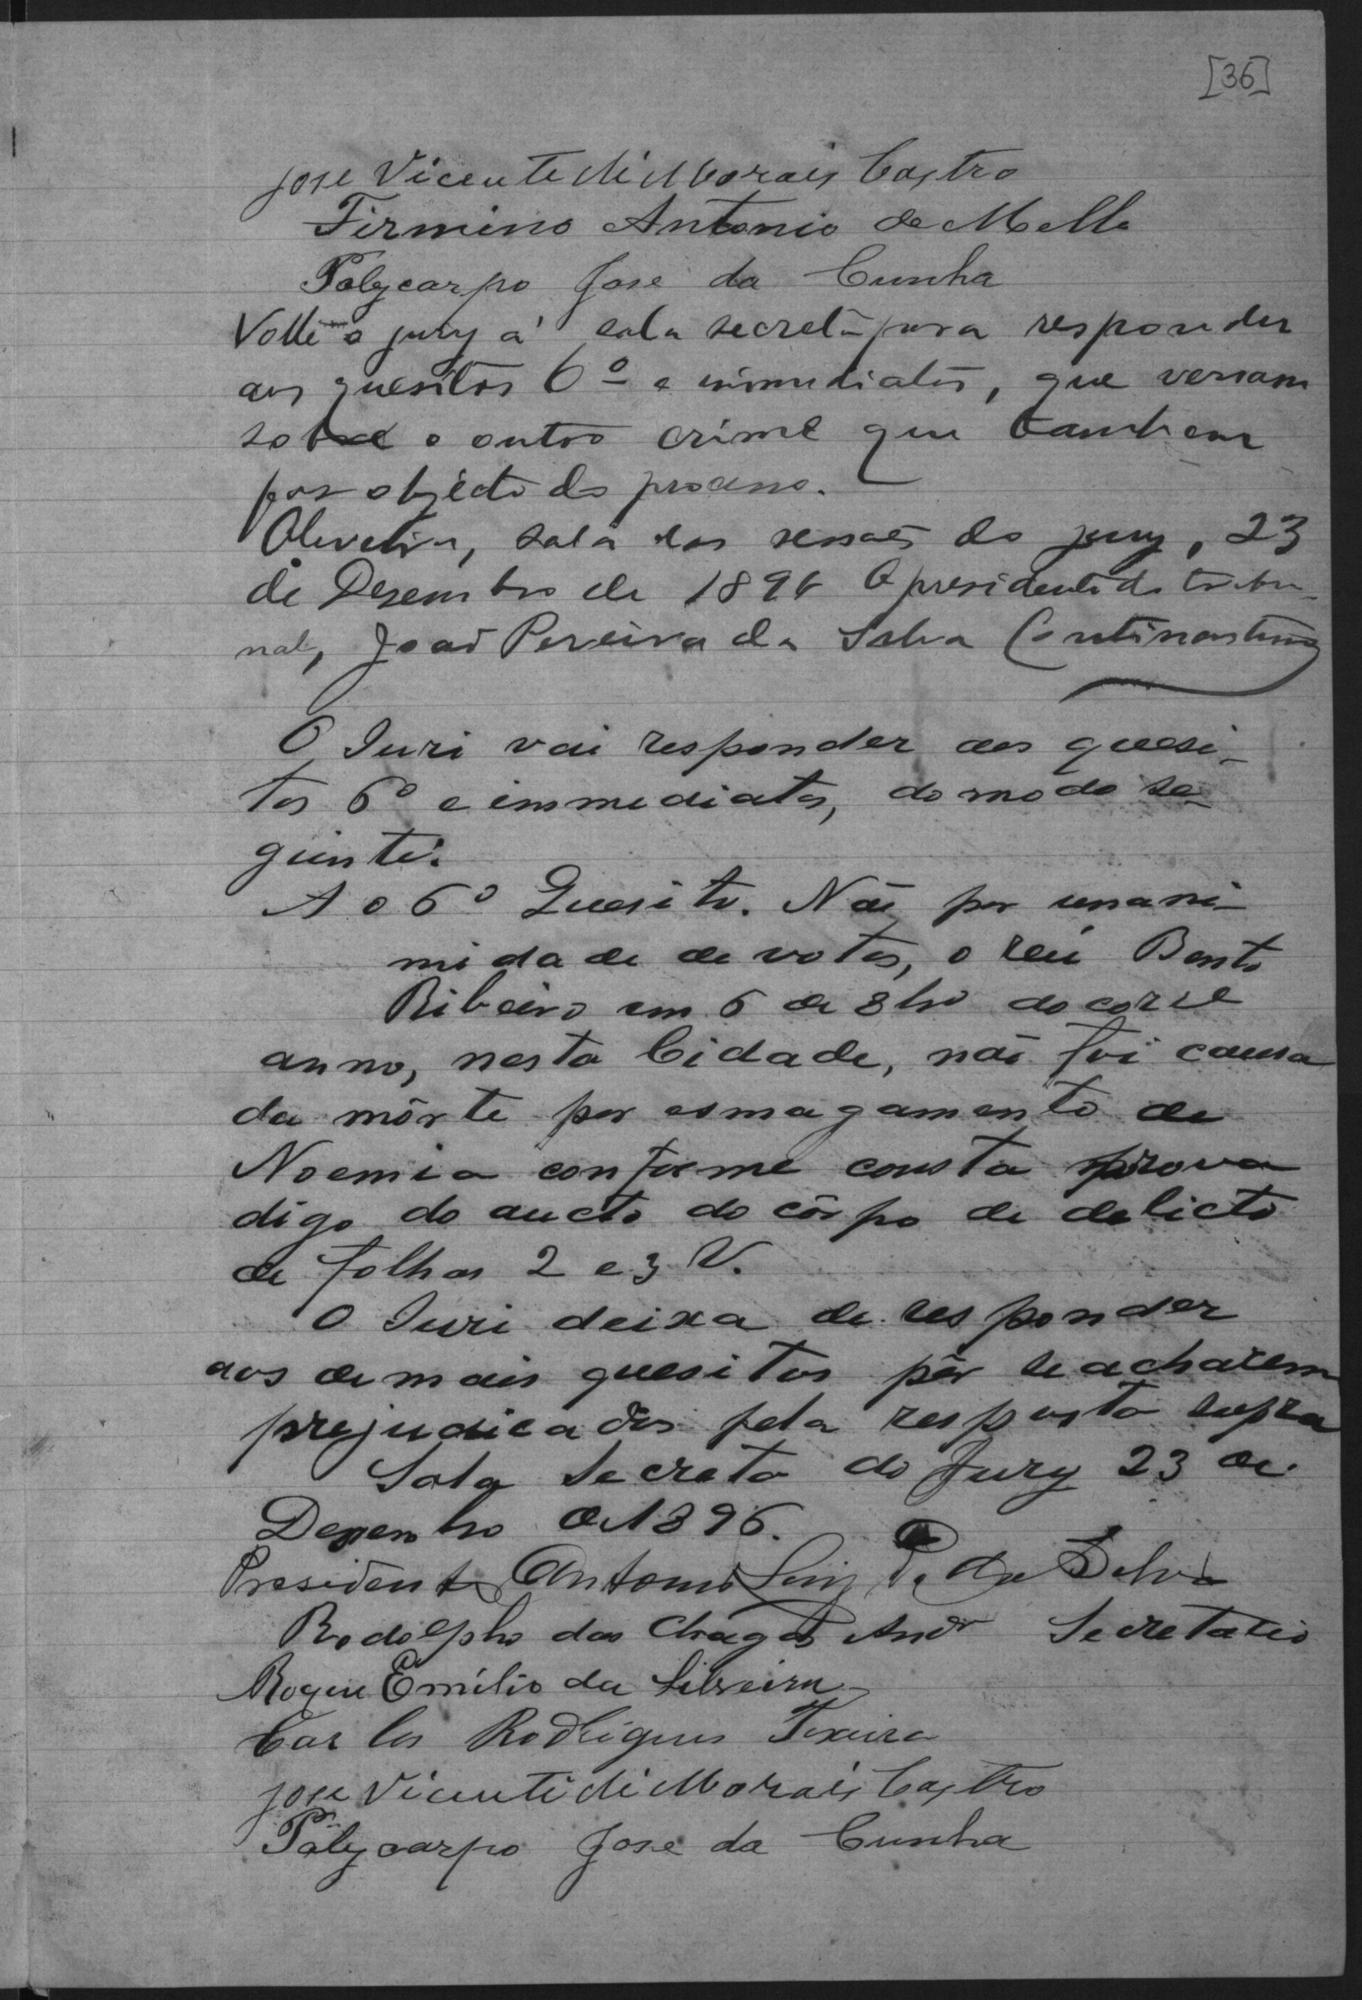 [36]
Jose Vicente di Morais Castro
Firmino Antonio de Mello
Polycarpo Jose da Cunha
Volte o jury á sala secreta para responder
aos quesitos 6º e immediatos, que versam
sobre o outro crime que tambem
faz objécto do processo.
Oliveira, sala das sessões do jury, 23
de Desembro de 1896 O presidente do tribu-
nal, João Pereira da Silva Continentino
O Juri vai responder aos quesi-
tos 6º e immediatos, do modo se-
guinte:
Ao 6º Quesito. Não por unani-
midade de votos, o réu Bento
Ribeiro em 6 de 8bro do corre
anno, nesta Cidade, não foi causa
da môrte por esmagamento de
Noemia conforme consta prova
digo do aucto do côrpo de delicto
de folhas 2 e 3 V.
O Juri deixa de responder
aos demais quesitos pôr se acharem
prejudicados pela resposta supra
Sala Secreta do Jury 23 de
Dezembro de 1896.
Presidente Antonio Luiz P. da Silva
Rodolpho das Chagas Andr Secretario
Roque Emilio da Silveira
Carlos Rodrigues Teixeira
Jose Vicenti di Morais Castro
Polycarpo Jose da Cunha